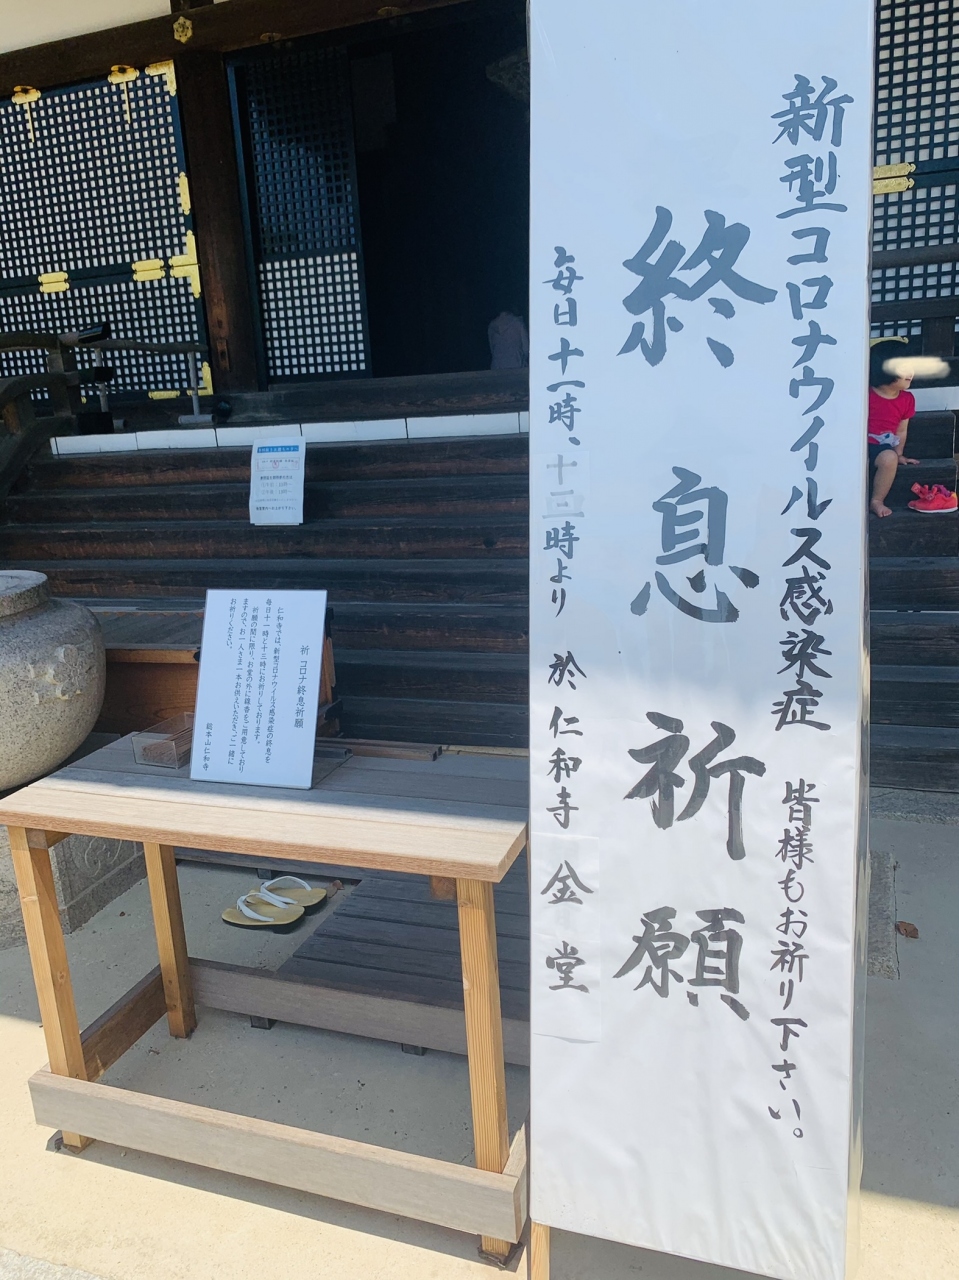 新型コロナウイルス感染症 皆様もお祈り下さい。
終息祈願
毎日十一時、十三時より 於 仁和寺 金堂
祈 コロナ終息祈願
仁和寺では、新型コロナウイルス感染症の終息を
毎日十一時と十三時にお祈りしております。
祈願の間に限り、お堂の外に線香をご用意しており
ますので、お一人さま一本お供えいただき、ご一緒に
お祈りください。
総本山仁和寺